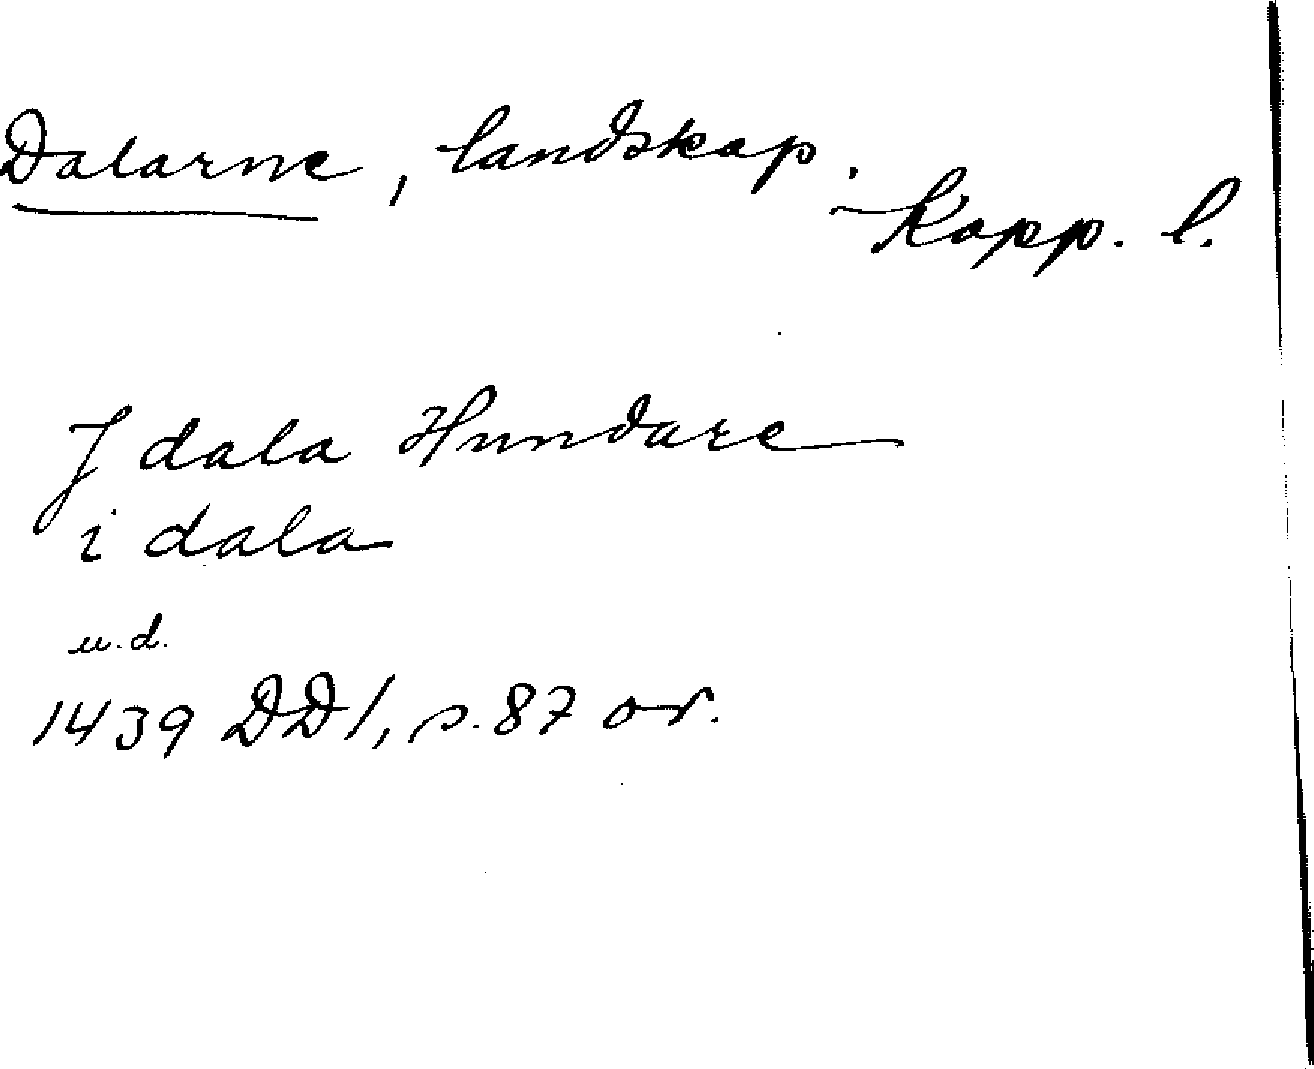 Dalarne, landskap.
Kopp. l.
J dala Hundare
i dala
u.d.
1439 DD 1, s. 87 or.